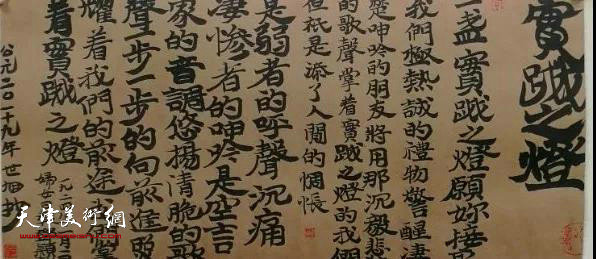 實踐之燈
一盏實踐之燈願妳接
我們極熱誠的禮物警醒凄
楚呻吟的朋友將用那沉毅悲
的歌聲掌着實踐之燈的我們
但祇是添了人間的惆悵
是弱者的呼聲沉痛
凄慘者的呻吟是空言
家的音調悠揚清脆的歌
聲一步一步的向前進照
耀着我們的前途
着實踐之燈
公元二〇一九年
天津美術網